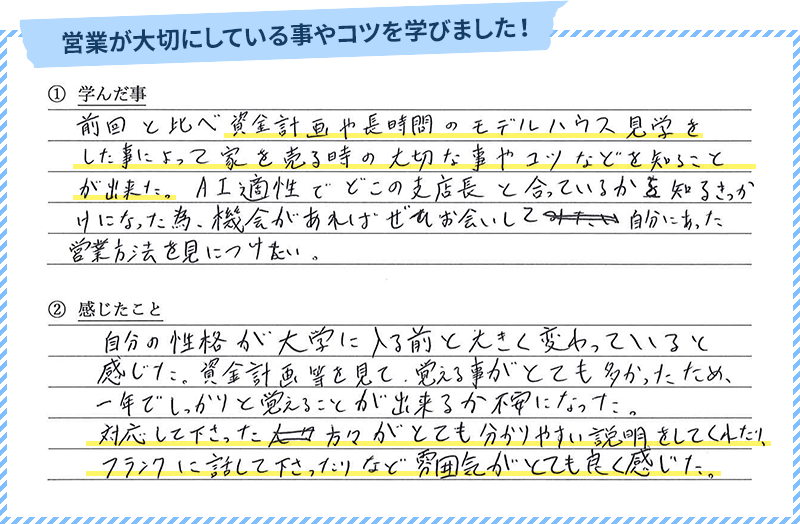 営業が大切にしている事やコツを学びました！
① 学んだ事
前回と比べ資金計画や長時間のモデルハウス見学を
した事によって家を売る時の大切な事やコツなどを知ること
が出来た。AI適性でどこの支店長と合っているかを知るきっか
けになった為、機会があればぜひお会いして自分にあった
営業方法を見につけたい。
② 感じたこと
自分の性格が大学に入る前と大きく変わっていると
感じた。資金計画等を見て、覚える事がとても多かったため、
一年でしっかりと覚えることが出来るか不安になった。
対応して下さった方々がとても分かりやすい説明をしてくれたり、
フランクに話して下さったりなど雰囲気がとても良く感じた。